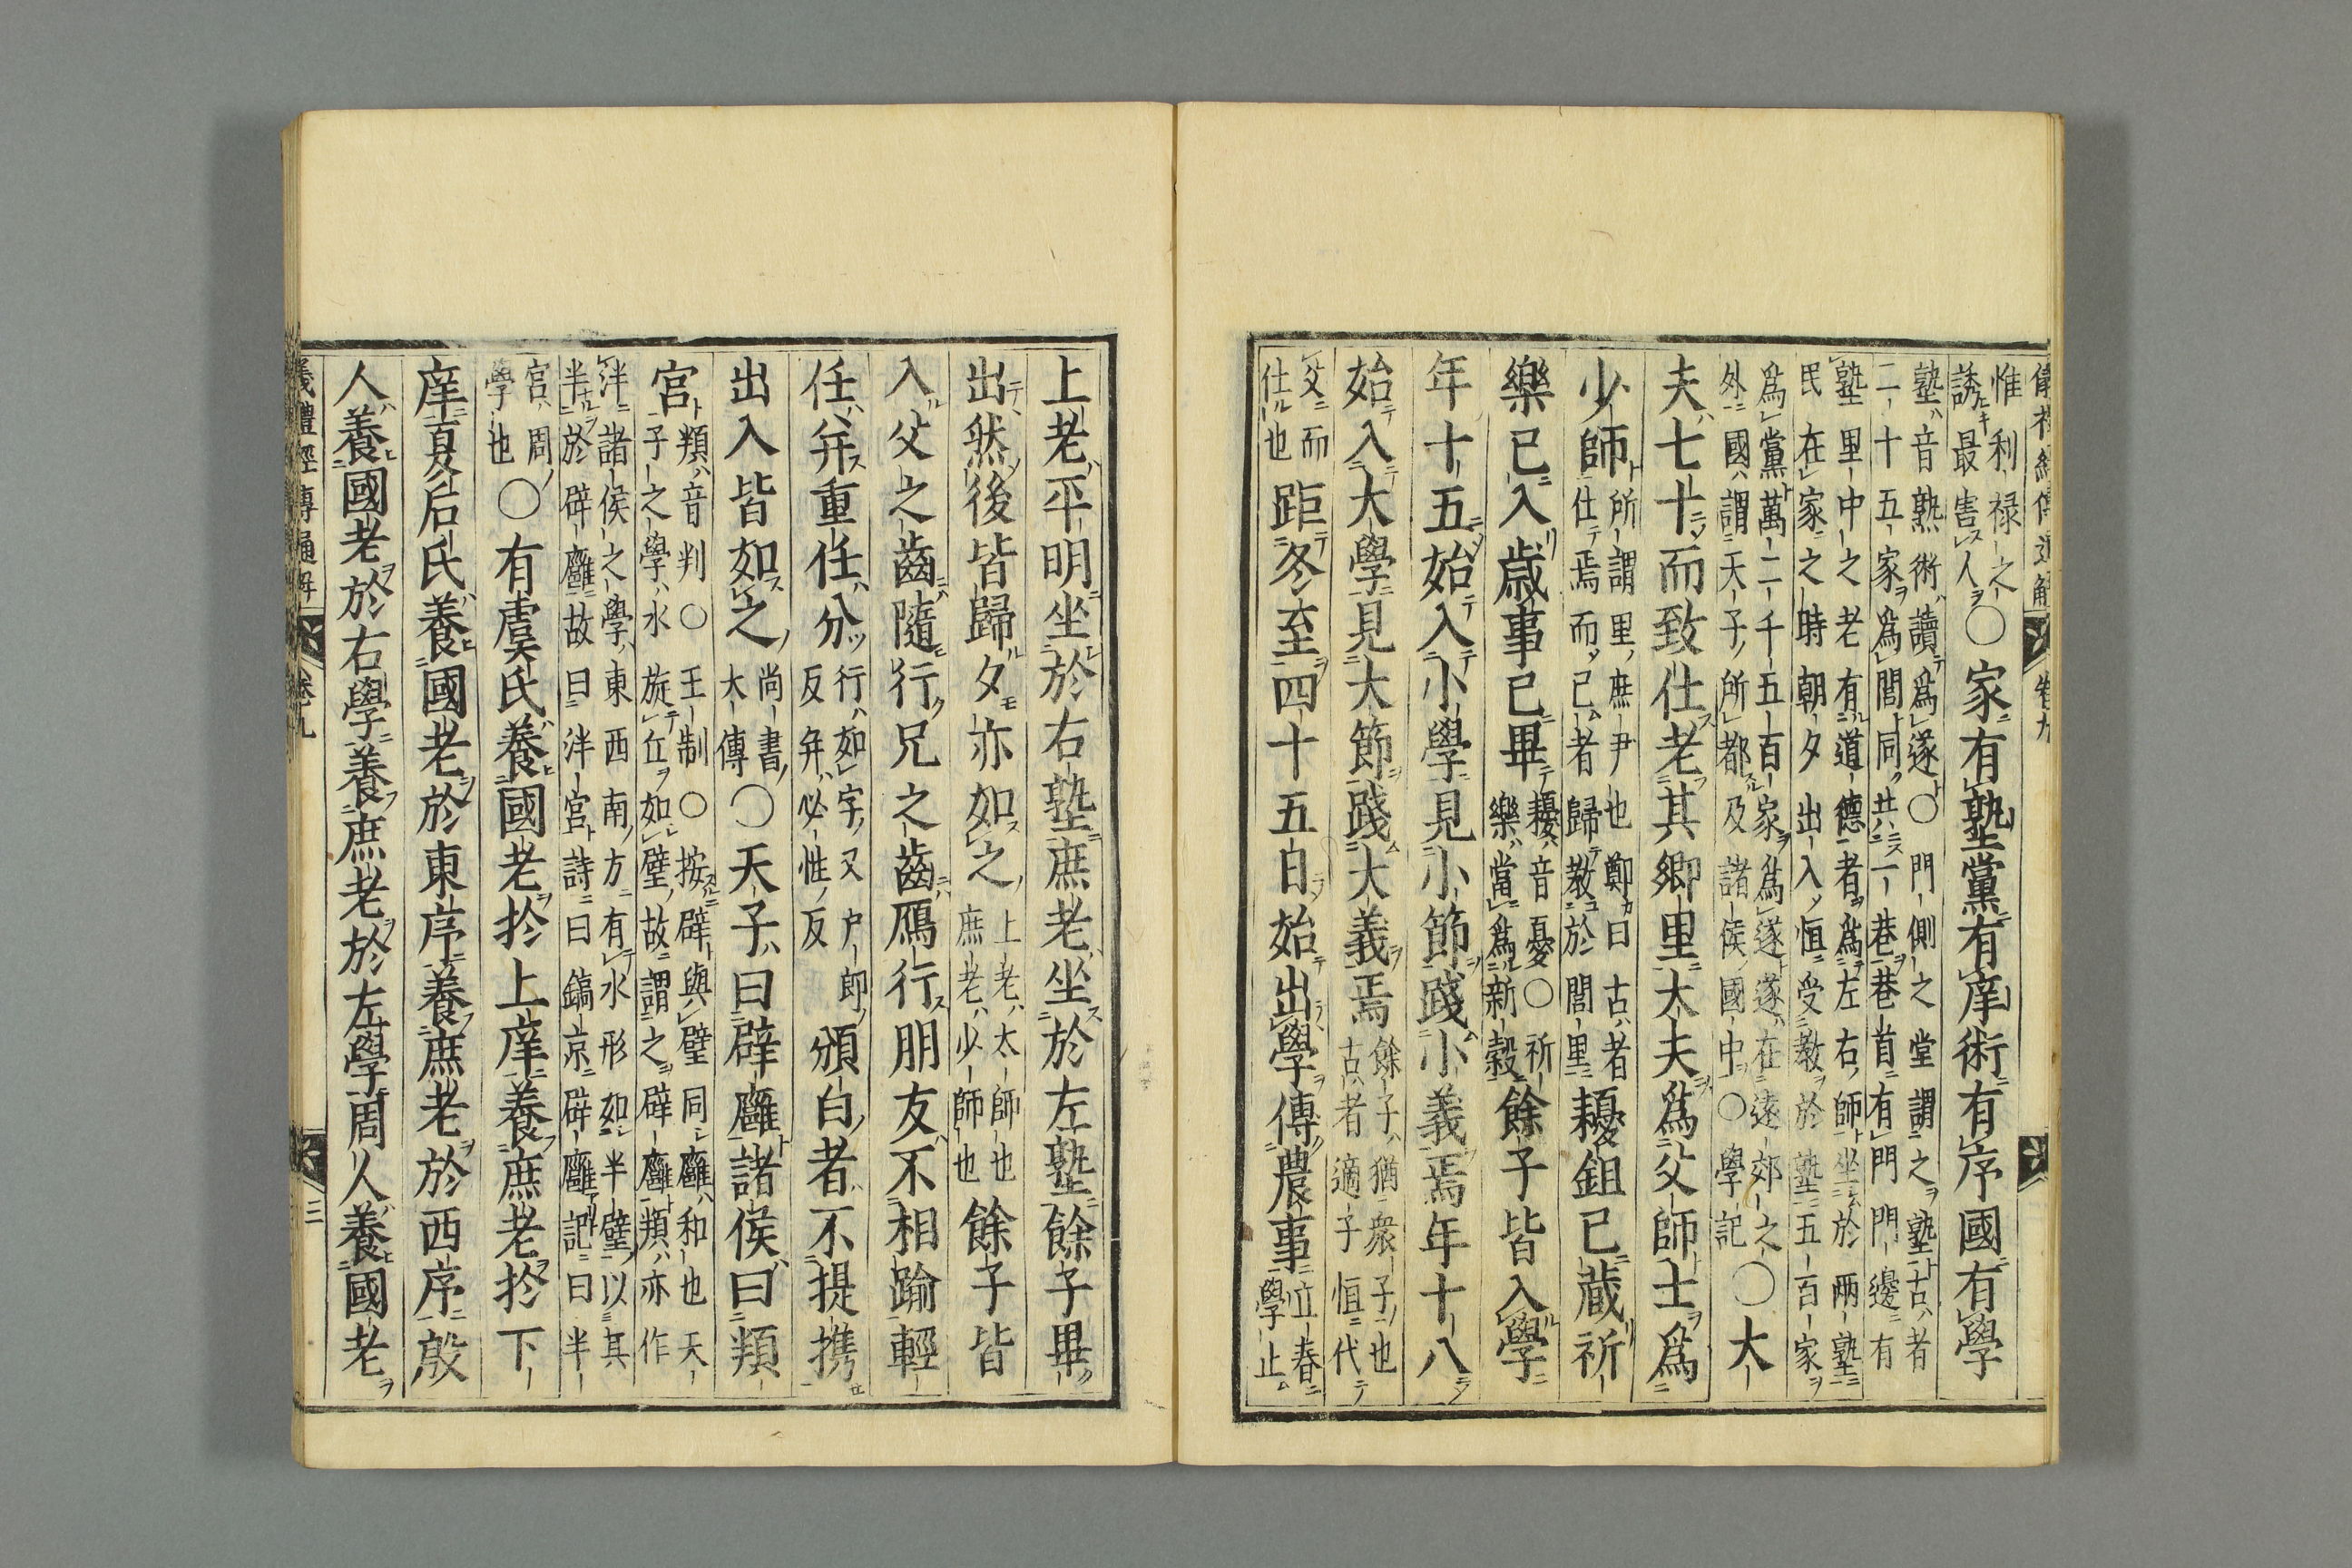 儀禮經傳通解　卷九
惟利祿之
誘最害人
○家有塾黨有庠術有序國有學
塾音熟術讀爲遂○門側之堂謂之塾古者
二十五家爲閭同共一巷巷首有門門邊有
塾里中之老有道德者爲左右師坐於兩塾
民在家之時朝夕出入恒受教於塾五百家
爲黨萬二千五百家爲遂遂在遠郊之
外國謂天子所都及諸侯國中○學記
○大
夫七十而致仕老其鄉里大夫爲父師士爲
少師
所謂里庶尹也鄭曰古者
仕焉而已者歸教於閭里
耰鉏已藏祈
樂已入歲事已畢
耰音憂○祈
樂當爲新穀
餘子皆入學
年十五始入小學見小節踐小義焉年十八
始入大學見大節踐大義焉
餘子猶衆子也
古者適子恒代
父而
仕也
距冬至四十五日始出學傳農事
立春
學止
上老平明坐於右塾庶老坐於左塾餘子畢
出然後皆歸夕亦如之
上老太師也
庶老少師也
餘子皆
入父之齒隨行兄之齒鴈行朋友不相踰輕
任并重任分
行如字又戶郎
反并必性反
頒白者不提携
出入皆如之
尚書
大傳
○天子曰辟廱諸侯曰頖
宮
頖音判○王制○按辟與璧同廱和也天
子之學水旋丘如璧故謂之辟廱頖亦作
泮諸侯之學東西南方有水形如半璧以其
半於辟廱故曰泮宮詩曰鎬京辟廱記曰半
宮周
學也
○有虞氏養國老於上庠養庶老於下
庠夏后氏養國老於東序養庶老於西序殷
人養國老於右學養庶老於左學周人養國老
儀禮經傳通解　卷九　三